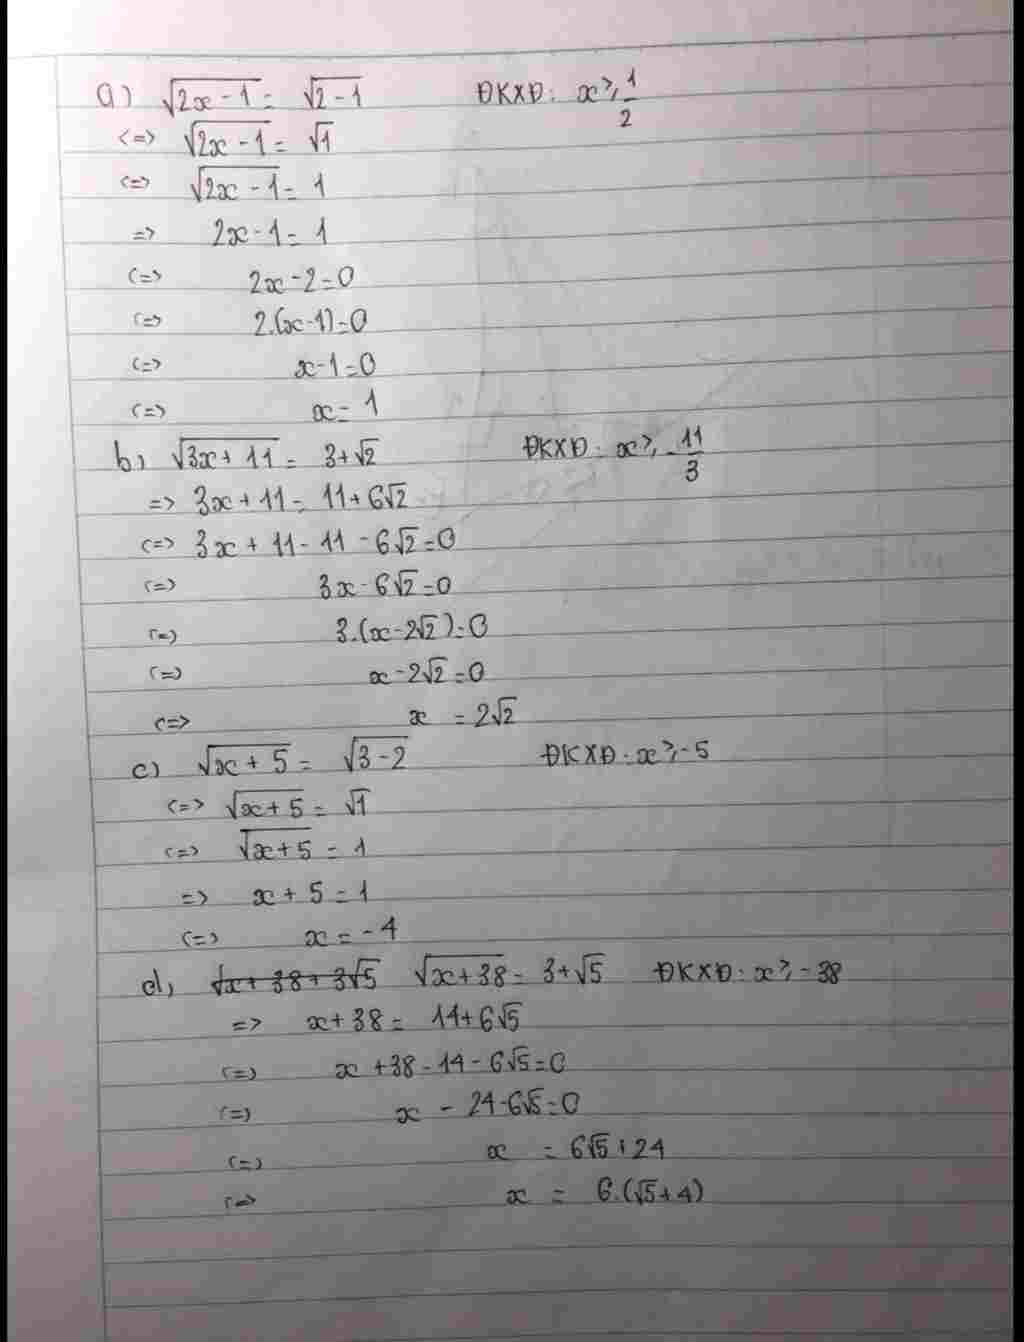 a) √(2x - 1) = √(2 - 1) ĐKXĐ: x ⩾ 1/2
<=> √(2x - 1) = √1
<=> √(2x - 1) = 1
=> 2x - 1 = 1
<=> 2x - 2 = 0
<=> 2.(x - 1) = 0
<=> x - 1 = 0
<=> x = 1
b) √(3x + 11) = 3 + √2 ĐKXĐ: x ⩾ -11/3
=> 3x + 11 = 11 + 6√2
<=> 3x + 11 - 11 - 6√2 = 0
<=> 3x - 6√2 = 0
<=> 3.(x - 2√2) = 0
<=> x - 2√2 = 0
<=> x = 2√2
c) √(x + 5) = √(3 - 2) ĐKXĐ: x ⩾ -5
<=> √(x + 5) = √1
<=> √(x + 5) = 1
=> x + 5 = 1
<=> x = -4
d) √x + 38 + 3√5 √(x + 38) = 3 + √5 ĐKXĐ: x ⩾ -38
=> x + 38 = 14 + 6√5
<=> x + 38 - 14 - 6√5 = 0
<=> x - 24 - 6√5 = 0
<=> x = 6√5 + 24
<=> x = 6.(√5 + 4)